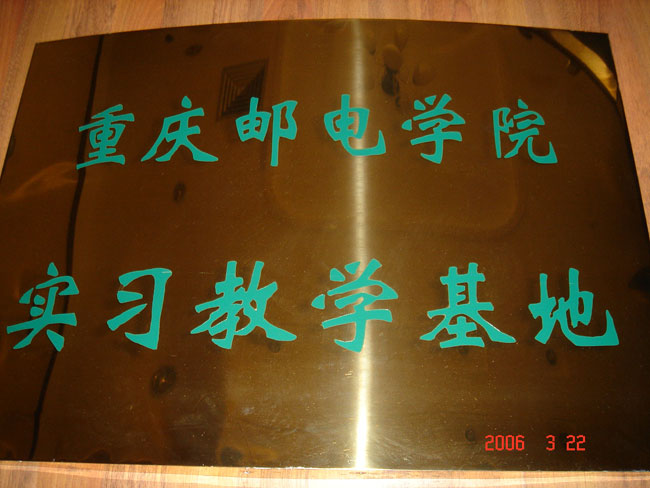 重庆邮电学院
实习教学基地
2006 3 22